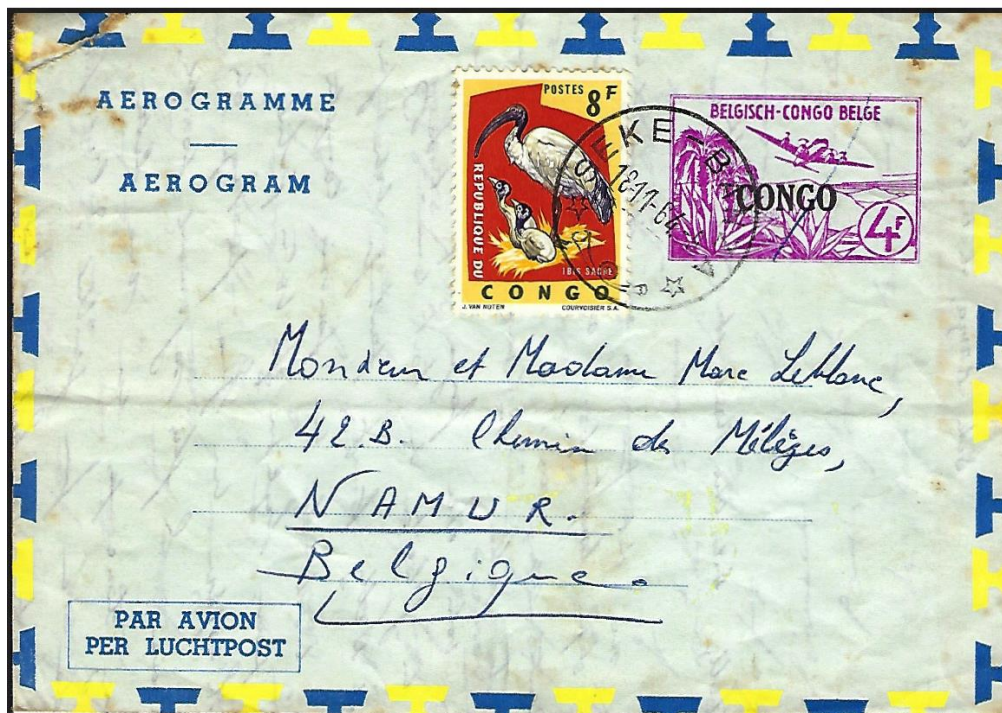 AEROGRAMME
AEROGRAM
POSTES 8F
REPUBLIQUE DU
IBIS SACRE
CONGO
J. VAN NOTEN COURVOISIER S.A.
BELGISCH-CONGO BELGE
CONGO
4F
18-11-64
Monsieur et Madame Marc Leblanc,
42.B. Chemin des Mélèzes,
NAMUR.
Belgique.
PAR AVION
PER LUCHTPOST